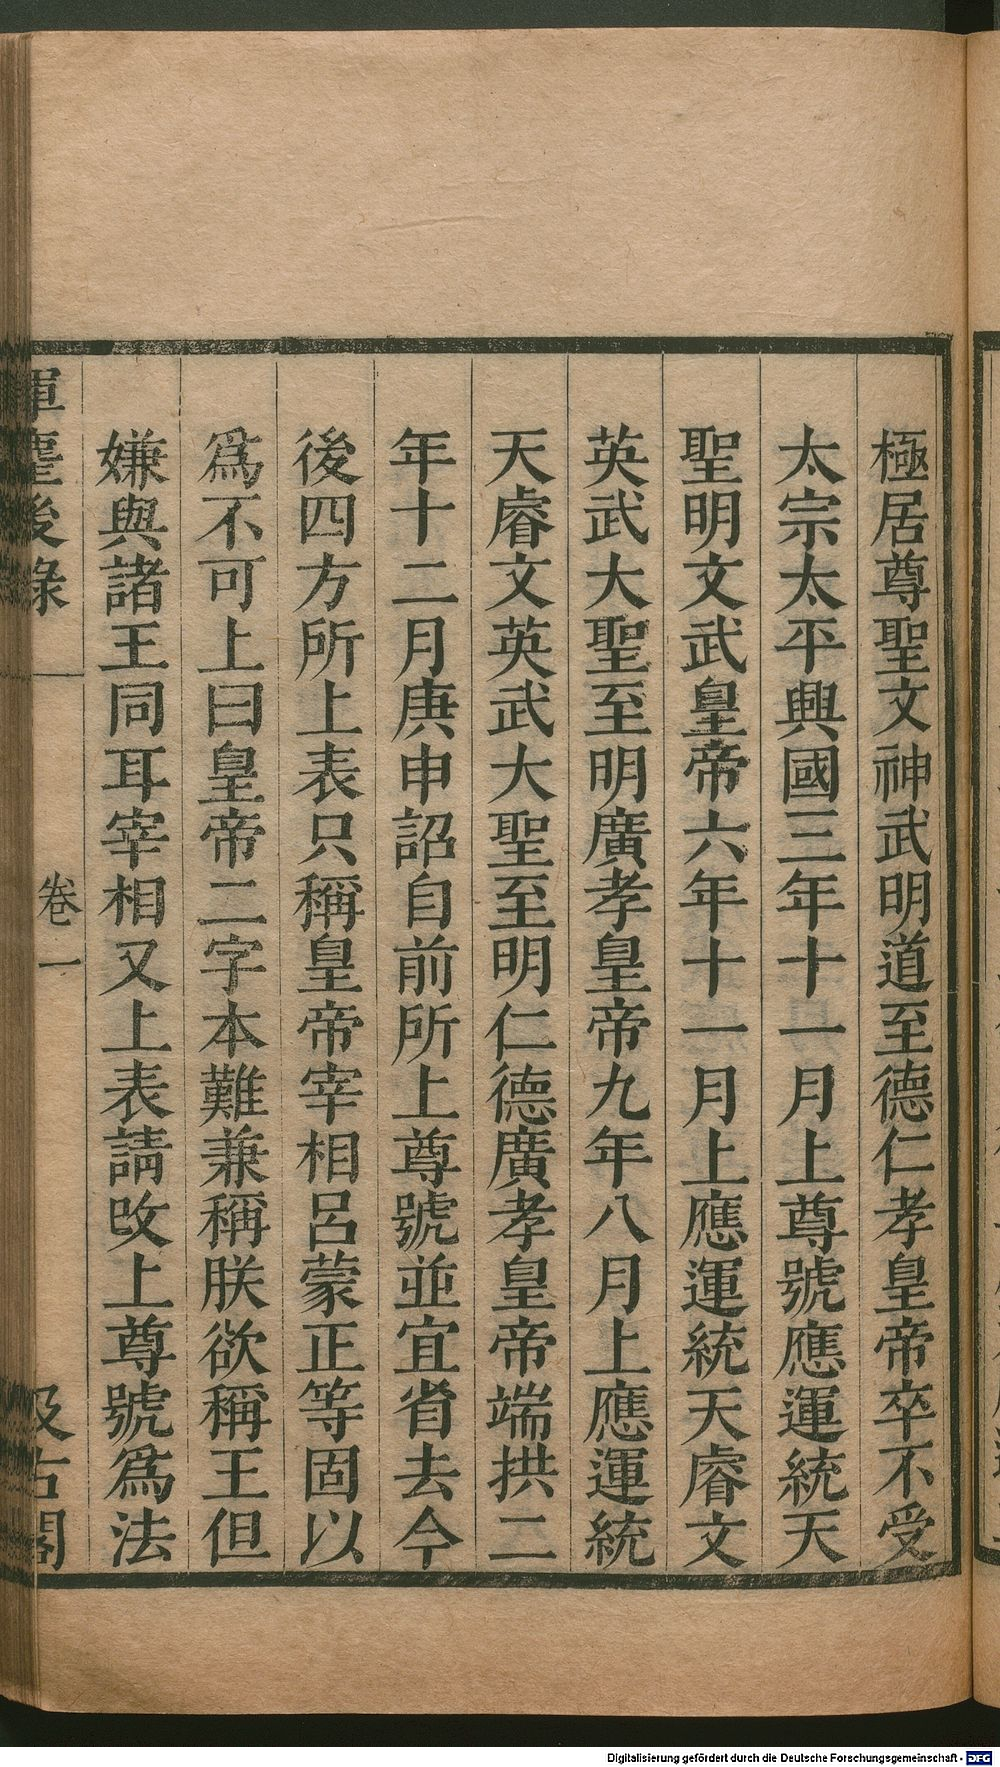 極居尊聖文神武明道至德仁孝皇帝卒不受
太宗太平興國三年十一月上尊號應運統天
聖明文武皇帝六年十一月上應運統天睿文
英武大聖至明廣孝皇帝九年八月上應運統
天睿文英武大聖至明仁德廣孝皇帝端拱二
年十二月庚申詔自前所上尊號並宜省去今
後四方所上表只稱皇帝宰相呂蒙正等固以
爲不可上曰皇帝二字本難兼稱朕欲稱王但
嫌與諸王同耳宰相又上表請改上尊號爲法
揮麈後錄 卷一 汲古閣
Digitalisierung gefördert durch die Deutsche Forschungsgemeinschaft - DFG